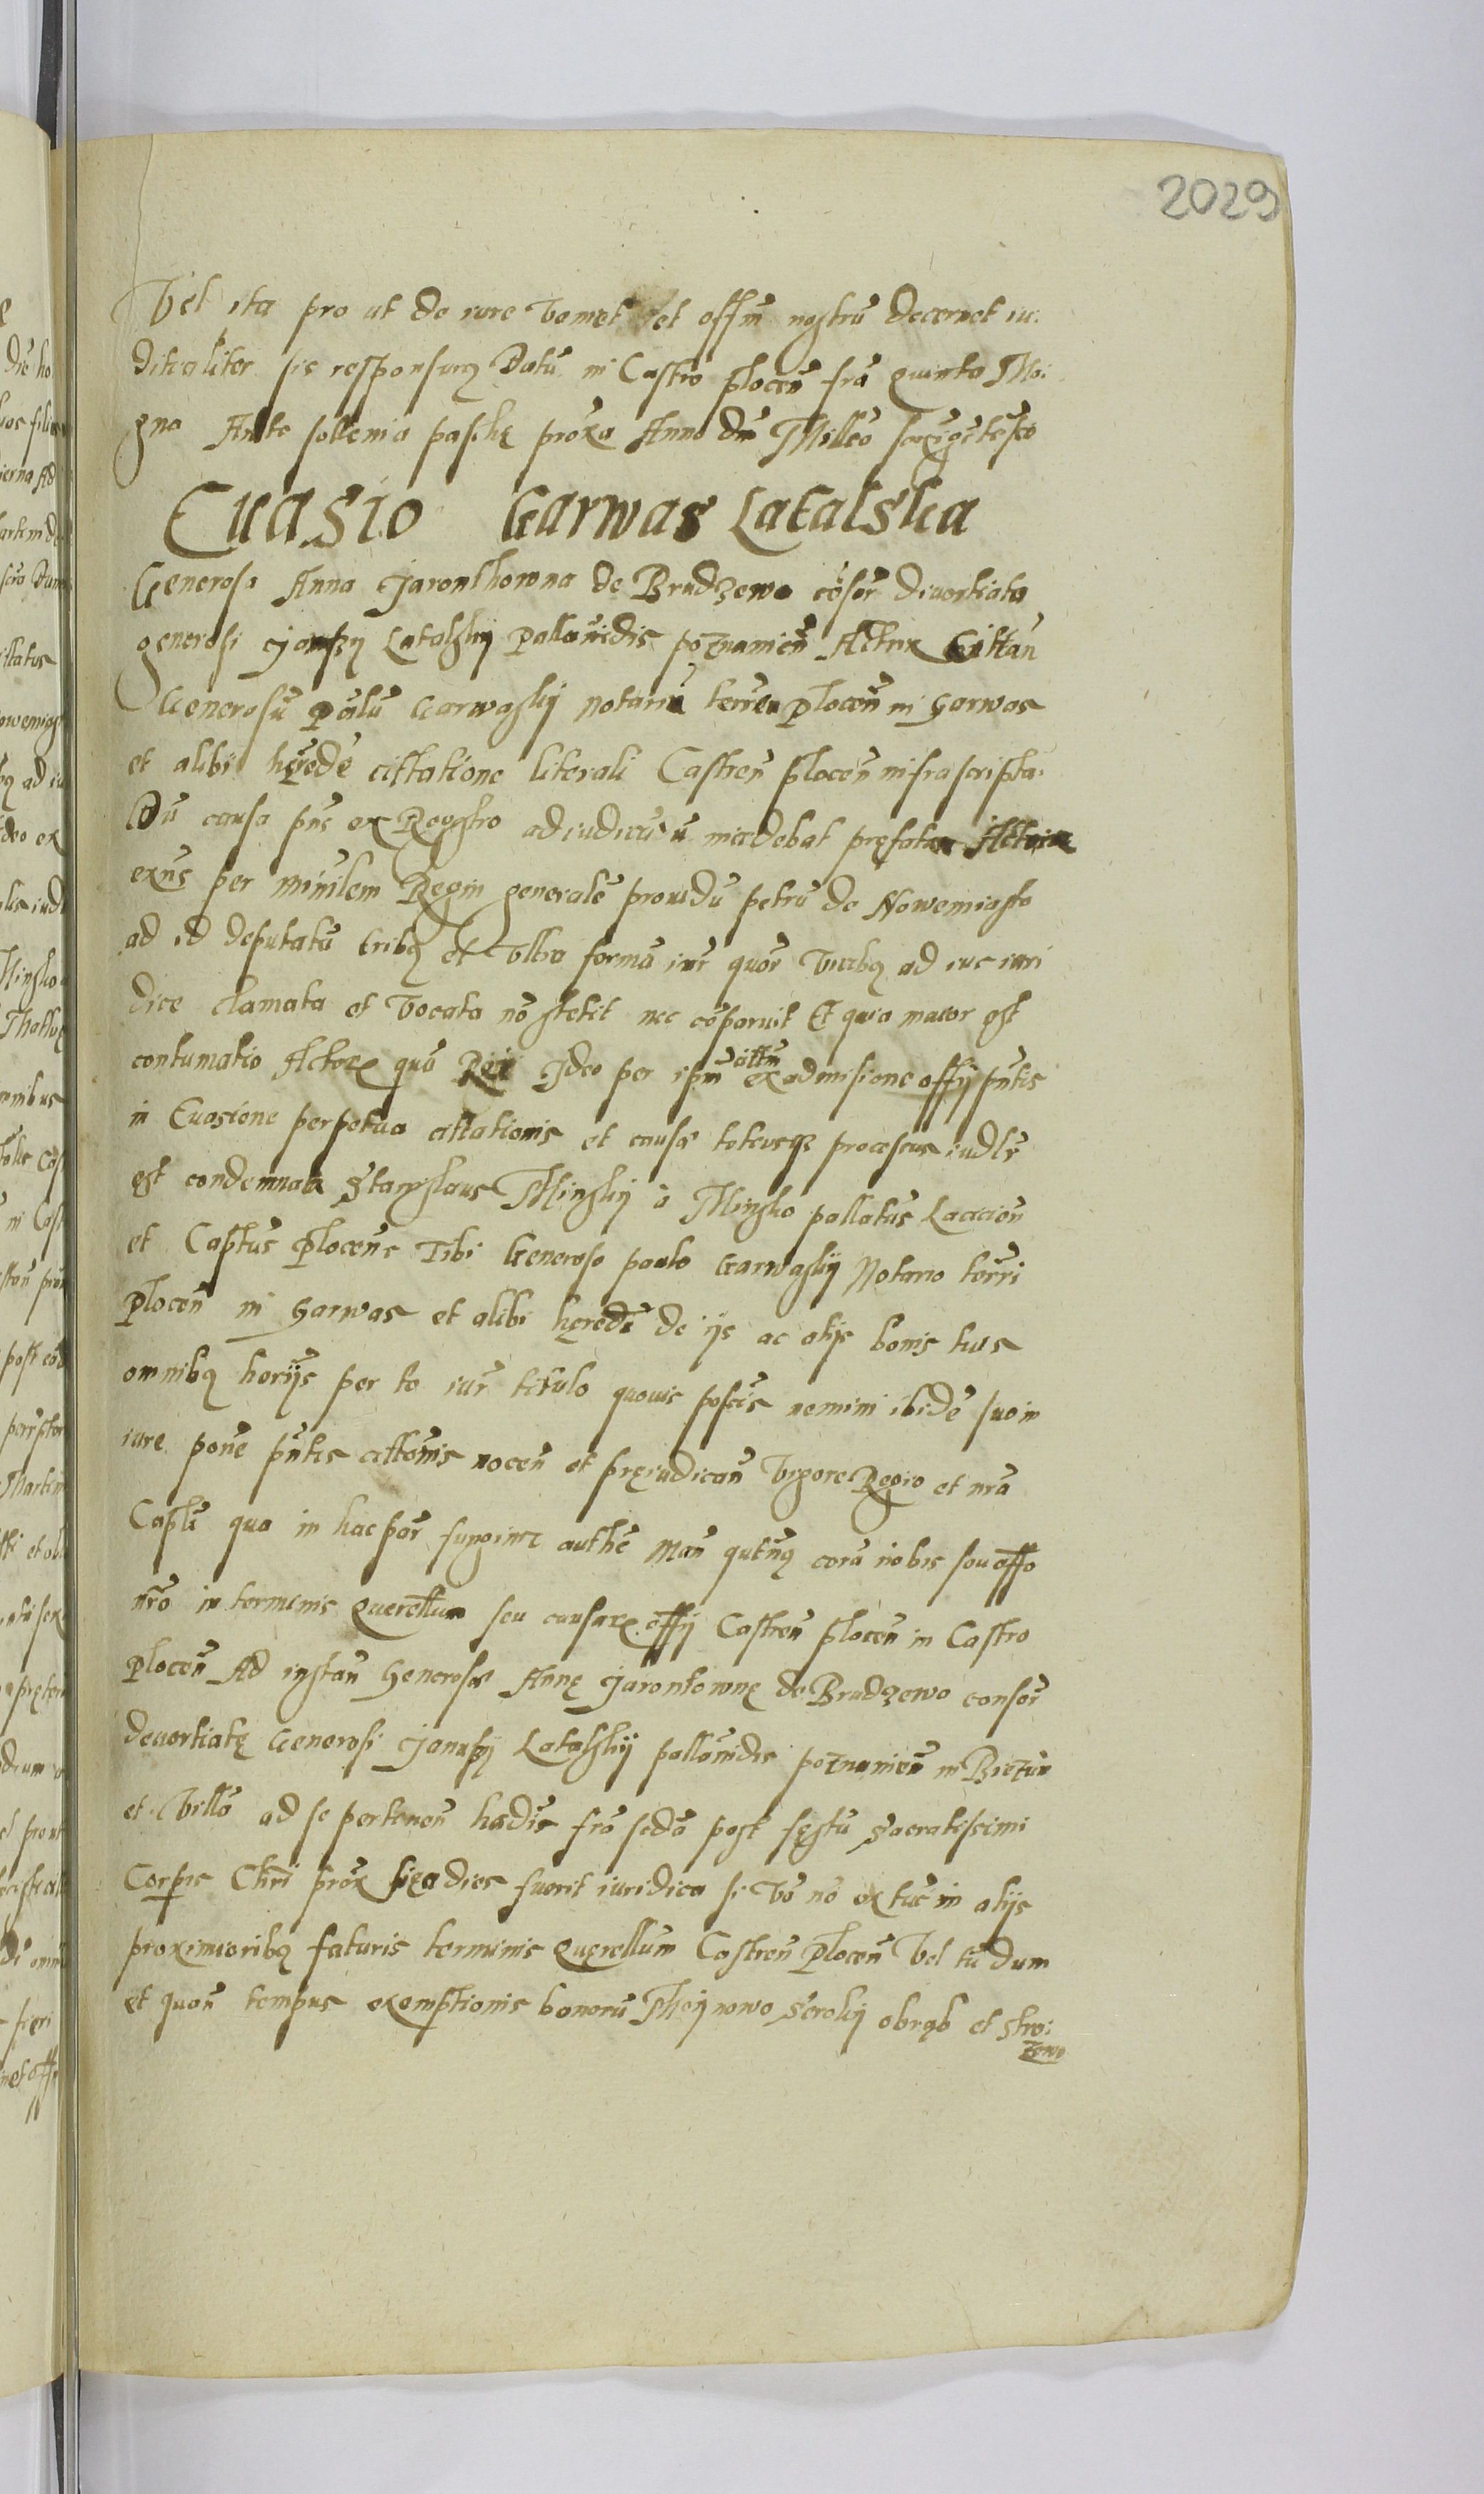 2029
Vel ita pro ut de iure venięt et offm̄ nostrū decernet iu:
ditialiter sis responsurꝰ Datū in Castro plocen̄ frā quinta Ma:
gna Ante sollenia paschę prox̄a Anno dn̄i Mill̄mo sexagētesīo
Evasio Garwas Latalska
Generosa Anna Jaronthowna de Brudzewo cōsor̄ divortiata
generosi Janussy Latalskij Pallatīdis poznanien̄ Actrix Cittan̄
Generosū Paulū Garwaskij notariū terren̄ Plocen̄ in Garwas
et alibi hęredē cittatione literali Castren̄ plocen̄ infrascripta.
Dū causa pn̄s ex Regestro ad iudiciū incidebat pręfata Actrix
exn̄s per minr̄lem Regni generalē providū petrū de Nowemiasto
ad id deputatū tribꝰ et Ultra formā iur̄ quor̄ vicibꝰ ad ius iuri
dice clamata et vocata nō stetit nec cōparuit Et quia maior est
contumatio Actorꝭ quā Rei Ideo per ipm̄ cittm̄ ex admisione offij pn̄tis
in Evasione perpetua cittationis et causæ totiusqꝫ processus iudl̄r
est condemnata Stanislaus Minskij à Minsko pallatūs Lancicien̄
et Captūs Plocens Tibi Generoso paulo Garwaskij Notario terrī
Plocen̄ in Garwas et alibi hęredi de ijs ac alijs bonis tuis
omnibꝰ herījs per te iur̄ titulo quovis possēis nemini ibidē suo in
iure pōne pn̄tis cittōnis nocen̄ et pręiudican̄ Vigore Regio et nr̄a
Captū qua in hac par̄ fungimr authē Man̄ qutn̄ꝰ corā nobis seu offo
nr̄o in terminis Querellarum seu causarꝭ offij Castren̄ plocen̄ in Castro
plocen̄ Ad instan̄ Generosæ Annę Jarontownę de Brudzewo consor̄
devortiatę Generosi Janussij Latalskij pallatīdis poznanien̄ in Biezun
et villā ad se pertenen̄ hædis frā scdā post festū Sacratissimi
Corpis Chri prox̄ si ea dies fuerit iuridica si vō nō ex tūc in alijs
proximioribꝰ futuris terminis Querellarum Castren̄ Plocen̄ Vel tū dum
et quan̄ tempus exemptionis bonorū Moynowo Serokij obrąb et stro:
zewo